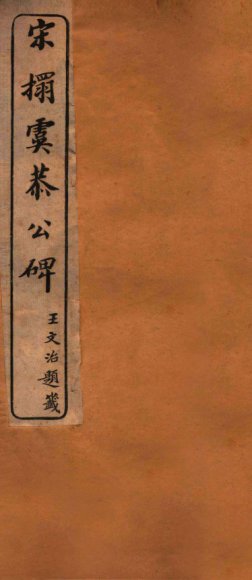 宋搨虞恭公碑
王文治題籤